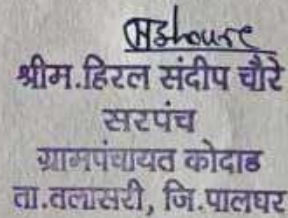 श्रीम.हिरल संदीप चौरे
सरपंच
ग्रामपंचायत कोदाड
ता.तलासरी, जि.पालघर